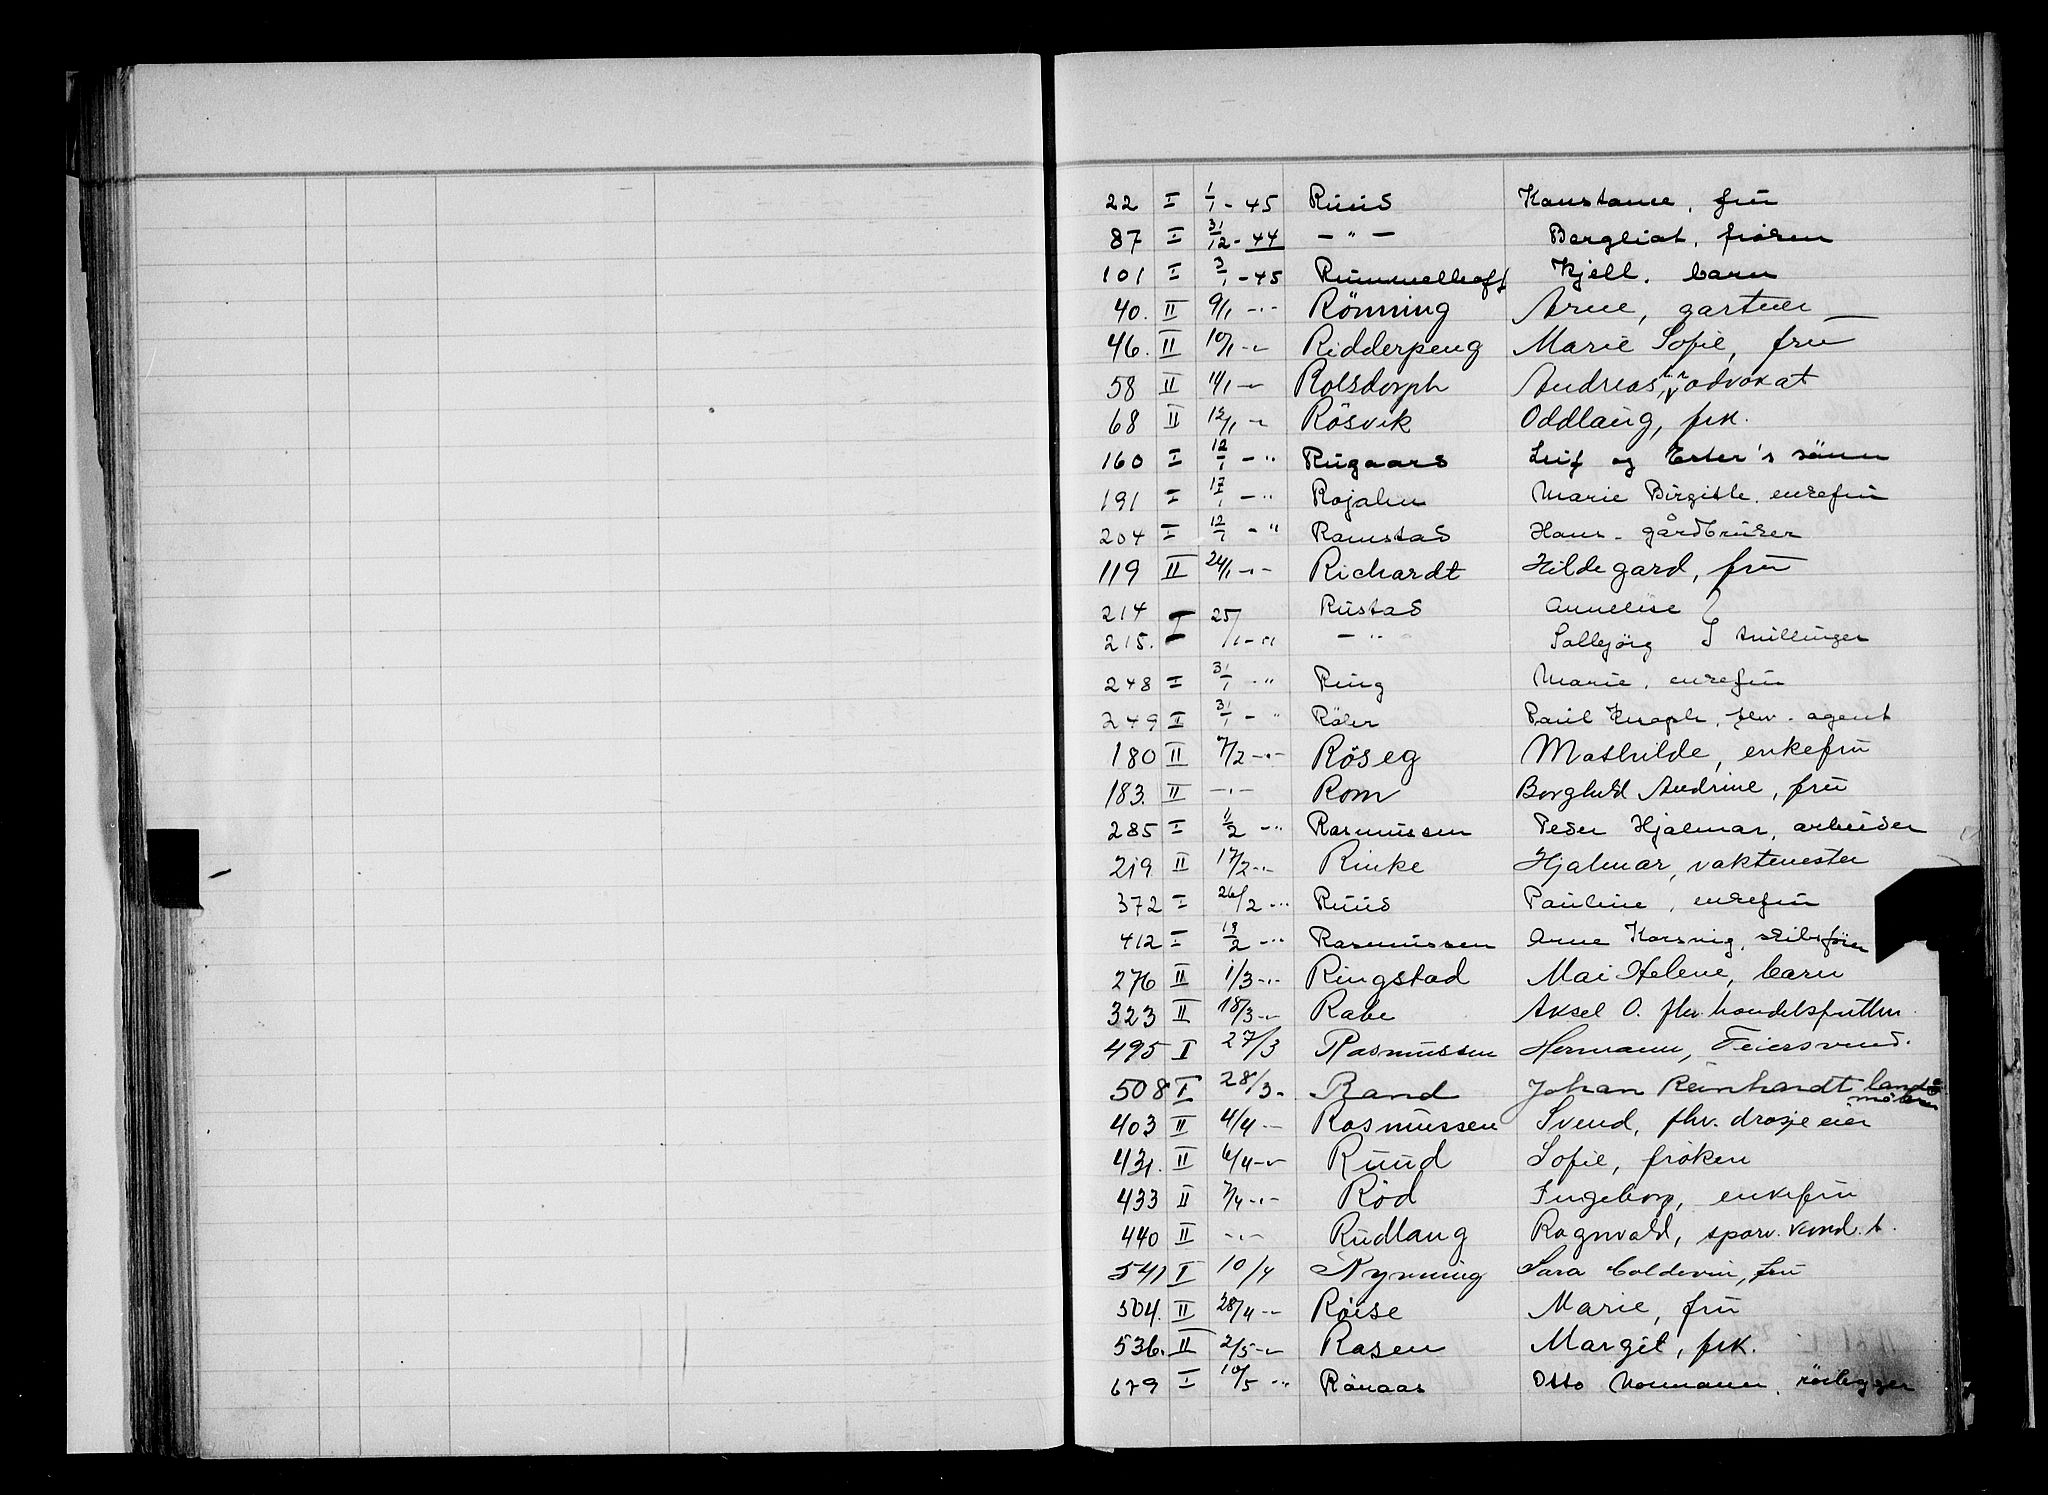 22 I 1/1 - 45 Ruud Konstance, fru
87 I 31/12 - 44 - " - Bergliot, frøken
101 I 3/1 - 45 Rummelhoff Kjell, barn
40. II 9/1 -"- Rönning Arne, gartner
46. II 10/1 -"- Ridderpeng Marie Sofie, fru
58 II 11/1 -"- Rolsdorph Andreas, advokat
68 II 12/1 -"- Rösvik Oddlaug, frk.
160 I 12/1 - " Rugaard Leif og Ester's sönn
191 I 17/1 - " Rojahn Marie Birgitte, enkefru
204 I 12/1 - " Ramstad Hans - gårdbruker
119 II 24/1 -"- Richardt Hildegard, fru
214 I 25/1 - " Rustad Annelise }
215. - " Solbjörg } tvillinger
248 I 31/1 - " Ring Marie, enkefru
249 I 31/1 - " Röer Paul Knoph, fhv. agent
180 II 7/2 -"- Röseg Mathilde, enkefru
183. II -"- Rom Borghild Andrine, fru
285 I 11/2 - " Rasmussen Peder Hjalmar, arbeider
219 II 17/2 -"- Rinke Hjalmar, vaktmester
372 I 26/2 - " Ruud Pauline, enkefru
412 I 19/2 - " Rasmussen Arne Korsvig, skibsfører
276 II 1/3 -"- Ringstad Mai Helene, barn
323 II 18/3 -"- Rabe Aksel O. fhv. handelsfullm.
495 I 27/3 Rasmussen Hermann, Feiersvend.
508 I 28/3 - Rand Johan Reinhardt land-
måler
403 II 4/4 -"- Rasmussen Svend, fhv. drosjeeier
431. II 6/4 -"- Ruud Sofie, frøken
433 II 7/4 -"- Röd Ingeborg, enkefru
440 II -"- Rudlang Ragnvald, sporv. kond.
541 I 10/4 Ryvning Sara Coldevin, fru
504. II 28/4 -"- Röise Marie, fru
536. II 2/5 -"- Rasen Margit, frk.
679 I 10/5 - " Rönaas Otto Normann, rörlegger